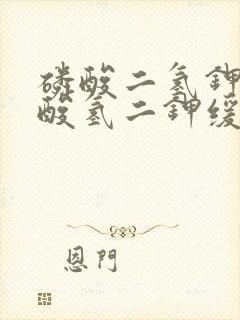 磷酸二氢钾
酸氢二钾缓
恩門